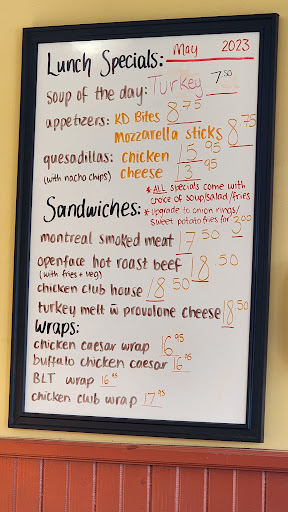 Lunch Specials: May 2023
soup of the day: Turkey 7.50
appetizers: KD Bites 8.75
Mozzarella sticks 8.75
quesadillas: chicken 15.95
(with nacho chips) cheese 13.95
* ALL specials come with
choice of soup/salad/fries
Sandwiches: * upgrade to onion rings/
sweet potato fries for 3.00
montreal smoked meat 17.50
openface hot roast beef 18.50
(with fries + veg)
chicken club house 18.50
turkey melt w provolone cheese 18.50
Wraps:
chicken caesar wrap 16.95
buffalo chicken caesar 16.95
BLT wrap 16.95
chicken club wrap 17.95